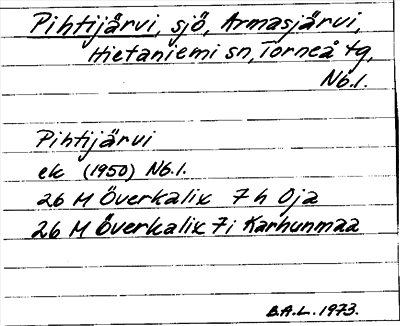 Pihtijärvi, sjö, Armasjärvi,
Hietaniemi sn, Torneå tg,
Nb.l.
Pihtijärvi
ek (1950) Nb.l.
26 M Överkalix 7h Oja
26 M Överkalix 7i Karhunmaa
B.A.L. 1973.